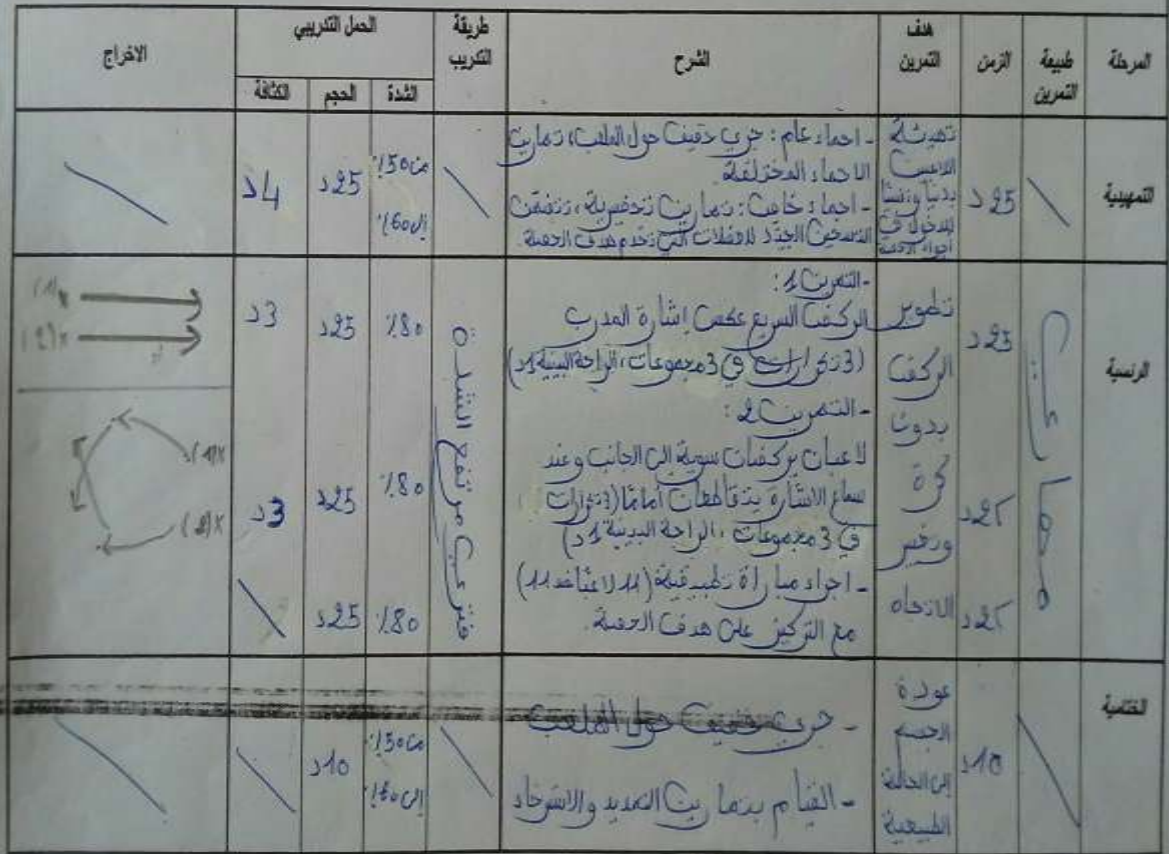 المرحلة
طبيعة التمرين
الزمن
هدف التمرين
الشرح
طريقة التدريب
الحمل التدريبي
الشدة
الحجم
الكثافة
الاخراج
التمهيدية
25د
تهيئة
اللاعبين
بدنيا ونفسيا
للدخول في
أجواء الحصة
- احماء عام: جري خفيف حول الملعب، تمارين
الاحماء المختلفة.
- احماء خاص: تمارين تحضيرية، تتضمن
التسخين الجيد للعضلات التي تخدم هدف الحصة.
من 50%
إلى 60%
25د
4د
الرئسية
مهاري
25د
25د
25د
تطوير
الركض
بدون
كرة
وتغيير
الاتجاه
- التمرين 1:
الركض السريع عكس إشارة المدرب
(3 تكرارات في 3 مجموعات، الراحة البينية 1د)
- التمرين 2:
لاعبان يركضان سوية إلى الجانب وعند
سماع الاشارة يتقاطعان أماما (3 تكرارات
في 3 مجموعات، الراحة البينية 1د)
- اجراء مباراة تطبيقية (11 لاعبا ضد 11)
مع التركيز على هدف الحصة.
فتري مرتفع الشدة
80%
25د
3د
80%
25د
3د
80%
25د
(1)x
(2)x
(1)x
(2)x
الختامية
10د
عودة
الجسم
إلى الحالة
الطبيعية
- جري خفيف حول الملعب
- القيام بتمارين التمديد والاسترخاء
من 50%
إلى
10د